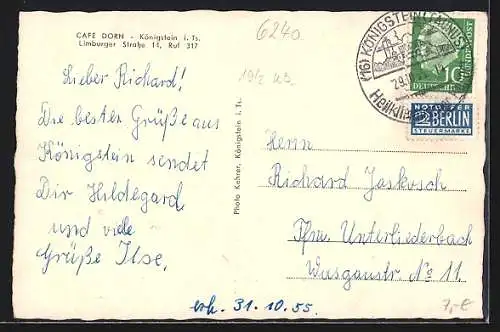 CAFE DORN - Königstein i. Ts.
Limburger Straße 14, Ruf 317
6240
19/2
Lieber Richard!
Die besten Grüße aus
Königstein sendet
Dir Hildegard
und viele
Grüße Ilse.
Photo Kahrer, Königstein i. Ts.
(16) KÖNIGSTEIN (TAUNUS)
29.10.
Heilkli
10
DEUTSCHE BUNDESPOST
NOTOPFER
2 BERLIN
STEUERMARKE
Herrn
Richard Jaskosch
Ffm. Unterliederbach
Wasgaustr. No 11.
erh. 31.10.55.
7,-€